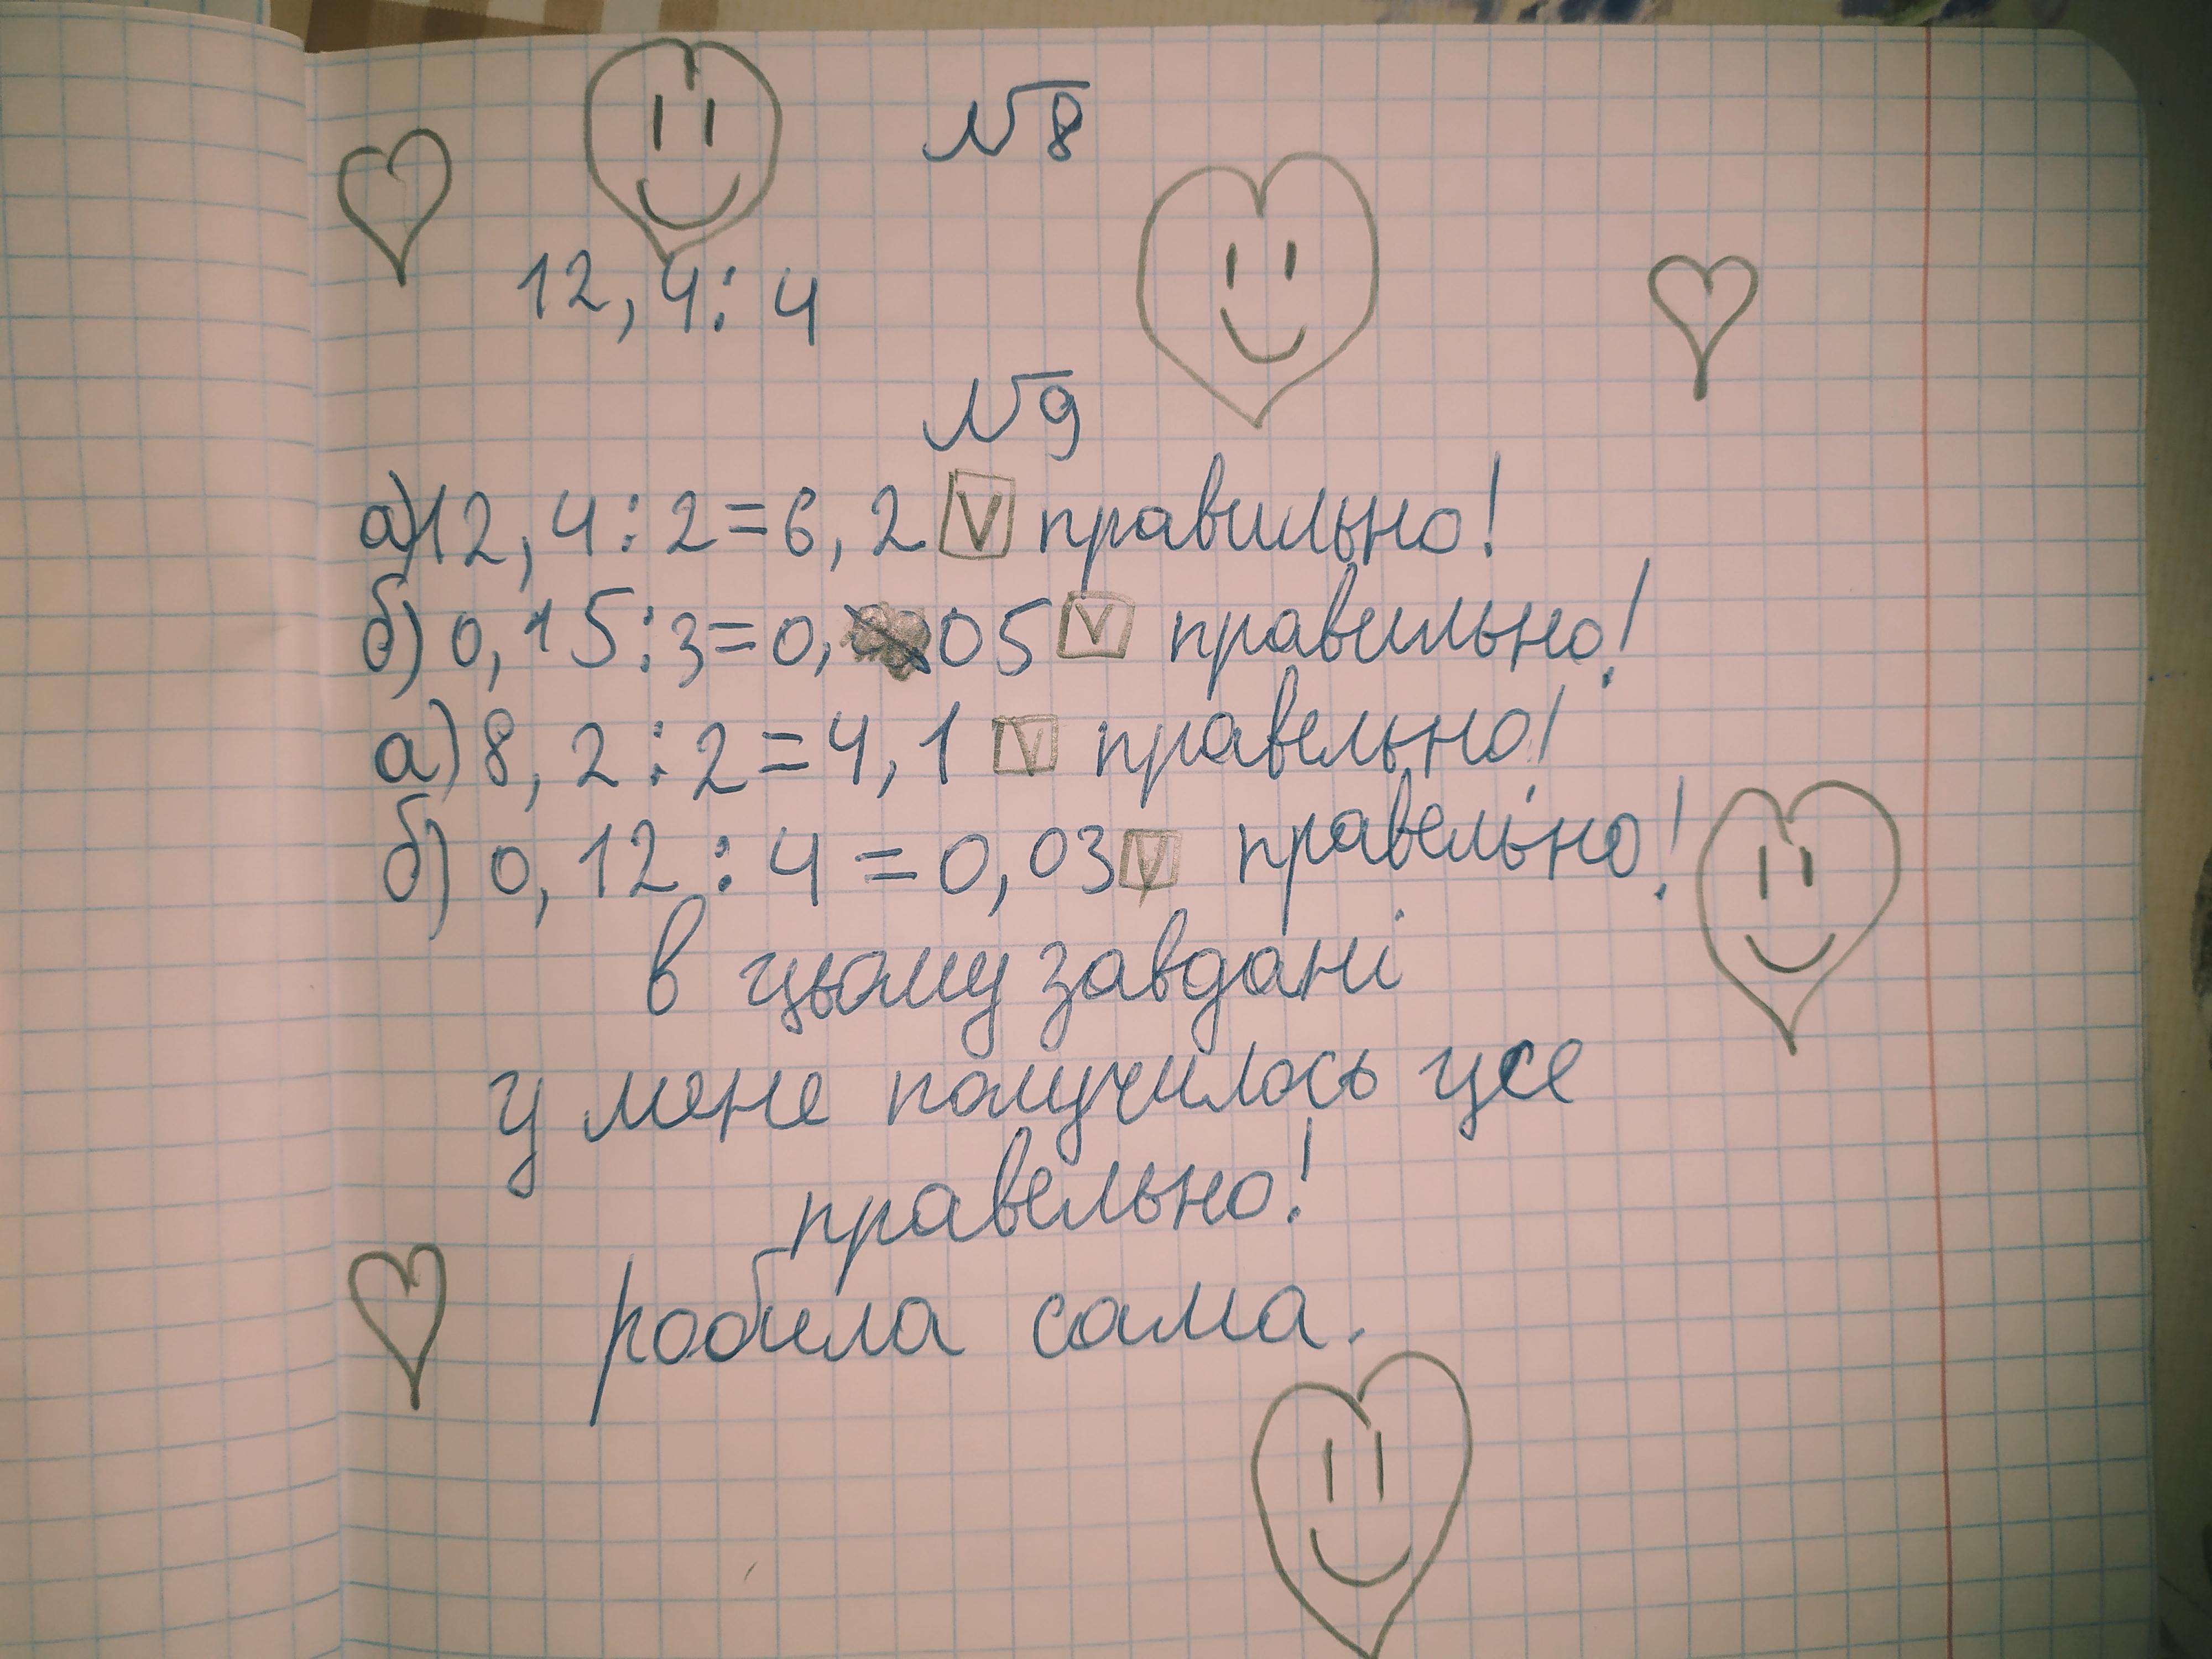 №8
12,4:4
№9
а)12,4:2=6,2 V правильно!
б) 0,15:3=0,05 V правильно!
а) 8,2:2=4,1 V правельно!
б) 0,12:4=0,03 V правельно!
в цьому завдані
у мене получилось усе
правельно!
робила сама.